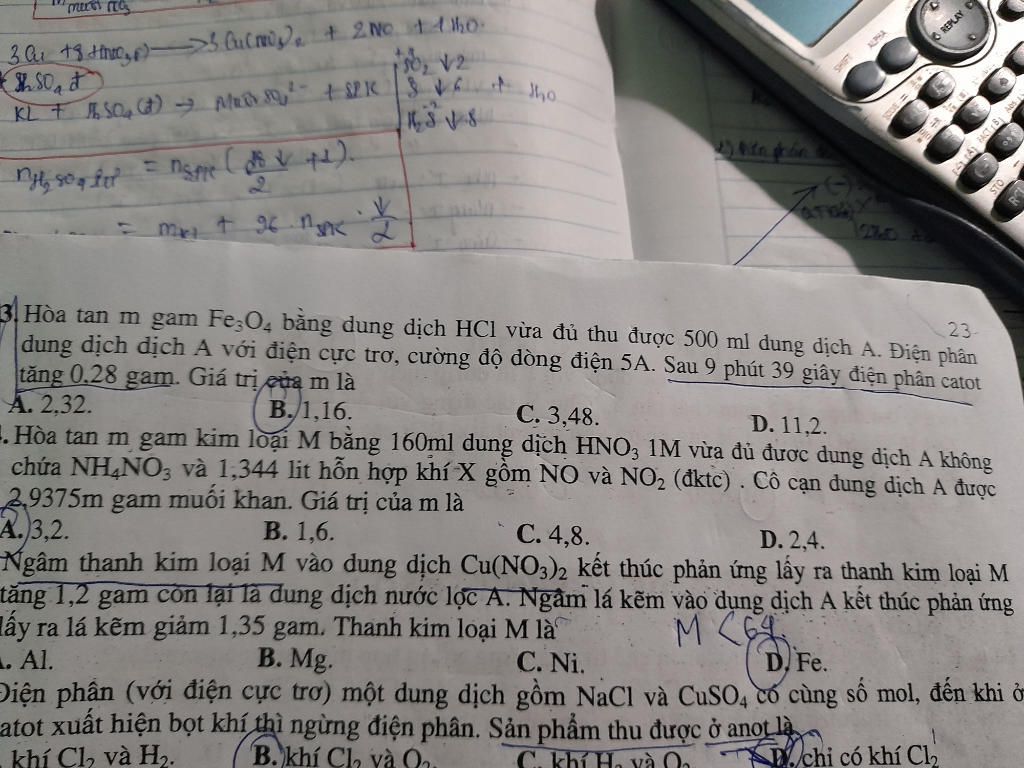 3Cu + 8HNO₃ → 3Cu(NO₃)₂ + 2NO + 4H₂O
H₂SO₄ đ
KL + H₂SO₄(đ) → Muối SO₄²⁻ + SPK + H₂O
SO₂ ↓2
S ↓6
H₂S ↓8
= nSPK ( +1).
2
= mKL + 96 . nSPK . ↓/2
REPLAY
SHIFT
ALPHA
STO
23
3. Hòa tan m gam Fe₃O₄ bằng dung dịch HCl vừa đủ thu được 500 ml dung dịch A. Điện phân
dung dịch dịch A với điện cực trơ, cường độ dòng điện 5A. Sau 9 phút 39 giây điện phân catot
tăng 0,28 gam. Giá trị của m là
A. 2,32. B. 1,16. C. 3,48. D. 11,2.
. Hòa tan m gam kim loại M bằng 160ml dung dịch HNO₃ 1M vừa đủ đươc dung dịch A không
chứa NH₄NO₃ và 1,344 lit hỗn hợp khí X gồm NO và NO₂ (đktc) . Cô cạn dung dịch A được
2,9375m gam muối khan. Giá trị của m là
A. 3,2. B. 1,6. C. 4,8. D. 2,4.
Ngâm thanh kim loại M vào dung dịch Cu(NO₃)₂ kết thúc phản ứng lấy ra thanh kim loại M
tăng 1,2 gam còn lại là dung dịch nước lọc A. Ngâm lá kẽm vào dung dịch A kết thúc phản ứng
lấy ra lá kẽm giảm 1,35 gam. Thanh kim loại M là
M < 64.
. Al. B. Mg. C. Ni. D. Fe.
Điện phân (với điện cực trơ) một dung dịch gồm NaCl và CuSO₄ có cùng số mol, đến khi ở
catot xuất hiện bọt khí thì ngừng điện phân. Sản phẩm thu được ở anot là
khí Cl₂ và H₂. B. khí Cl₂ và O₂. C. khí H₂ và O₂ D. chỉ có khí Cl₂